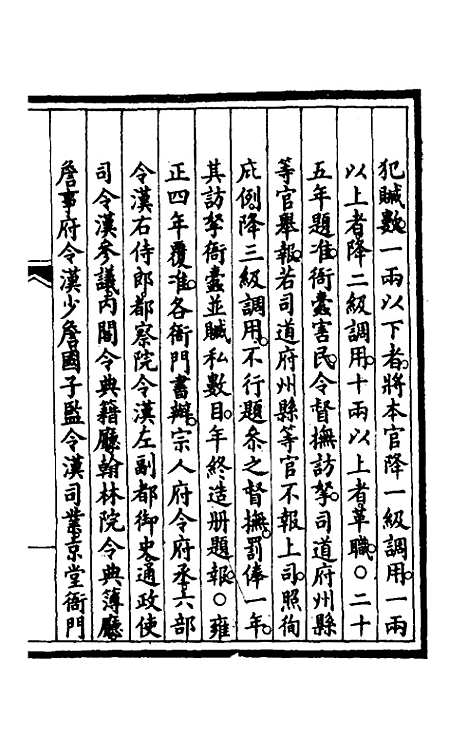 犯贓數一兩以下者將本官降一級調用一兩
以上者降二級調用十兩以上者革職○二十
五年題准衙蠹害民令督撫訪拏司道府州縣
等官舉報若司道府州縣等官不報上司照徇
庇例降三級調用不行題叅之督撫罰俸一年
其訪拏衙蠹並贓私數目年終造册題報○雍
正四年覆准各衙門書辦宗人府令府丞六部
令漢右侍郎都察院令漢左副都御史通政使
司令漢參議內閣令典籍廳翰林院令典簿廳
詹事府令漢少詹國子監令漢司業京堂衙門